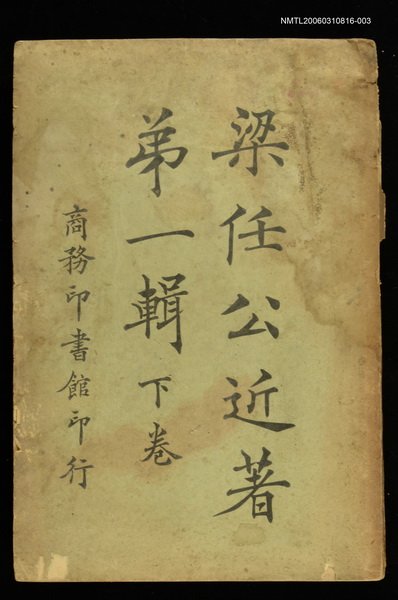 NMTL20060310816-003
梁任公近著
弟一輯下卷
商務印書館印行